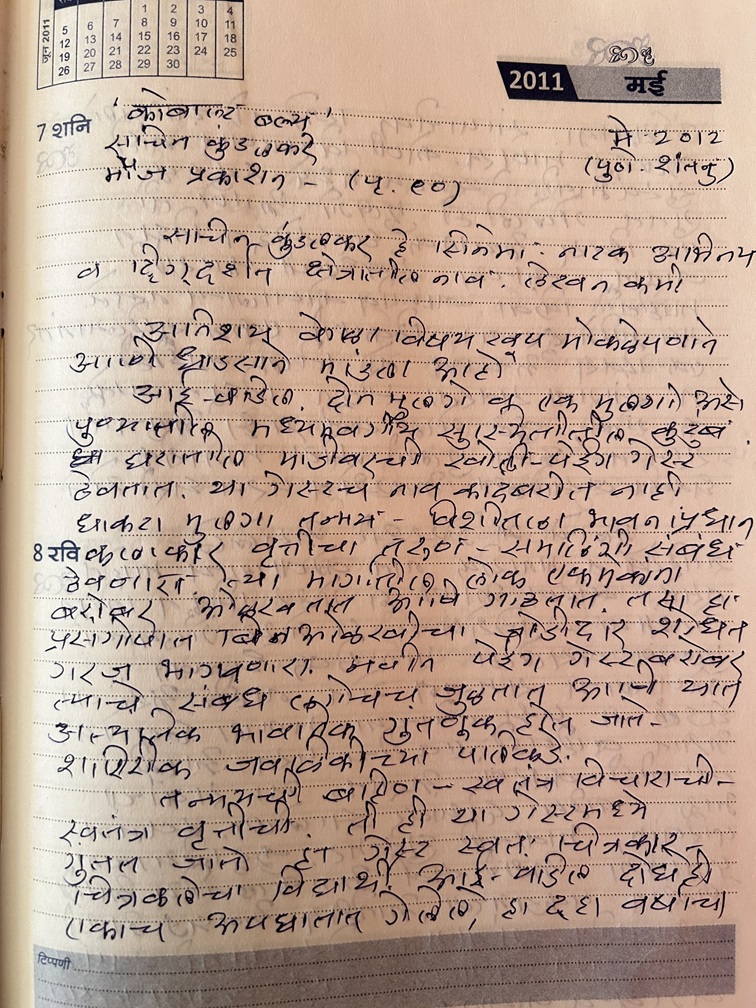 जून 2011
1 2 3 4
5 6 7 8 9 10 11
12 13 14 15 16 17 18
19 20 21 22 23 24 25
26 27 28 29 30
2011 मई
7 शनि
'कोबाल्ट ब्ल्यू'
मे 2012
सचिन कुंडलकर
(पुणे - शंतनु)
मौज प्रकाशन - (पृ. ९०)
सचिन कुंडलकर हे सिनेमा नाटक अभिनय
व दिग्दर्शन क्षेत्रातील नाव. लेखन कमी
अतिशय वेगळा विषय खूप मोकळेपणाने
आणि धाडसाने मांडला आहे
आई-वडिल, दोन मुलगे व एक मुलगी असे
पुण्यातील मध्यमवर्गीय सुस्थितीतील कुटुंब.
ह्या घरातील माडीवरची खोली-पेईंग गेस्ट
ठेवतात. या गेस्टचे नाव कादंबरीत नाही
धाकटा मुलगा तन्मय - विशीतला भावनाप्रधान
8 रवि कलाकार वृत्तीचा तरुण - समलिंगी संबंध
ठेवणारा. त्या मार्गातील लोक एकमेकांना
बरोबर ओळखतात आणि गाठतात. तसा हा
प्रसंगोपात बिनओळखीचा जोडीदार शोधत
गरज भागवणारा. नवीन पेईंग गेस्ट बरोबर
त्याचे संबंध लगेचच जुळतात आणि यात
अत्याधिक भावनिक गुंतणूक होत जाते-
शारिरीक जवळिकीच्या पलिकडे.
तन्मयची बहिण - स्वतंत्र विचाराची-
स्वतंत्र वृत्तीची. ती ही या गेस्टमध्ये
गुंतत जाते हा गेस्ट स्वतः चित्रकार-
चित्रकलेचा विद्यार्थी आई-वडिल दोघेही
एकाच अपघातात गेलेले, हा दहा वर्षाचा
टिप्पणी